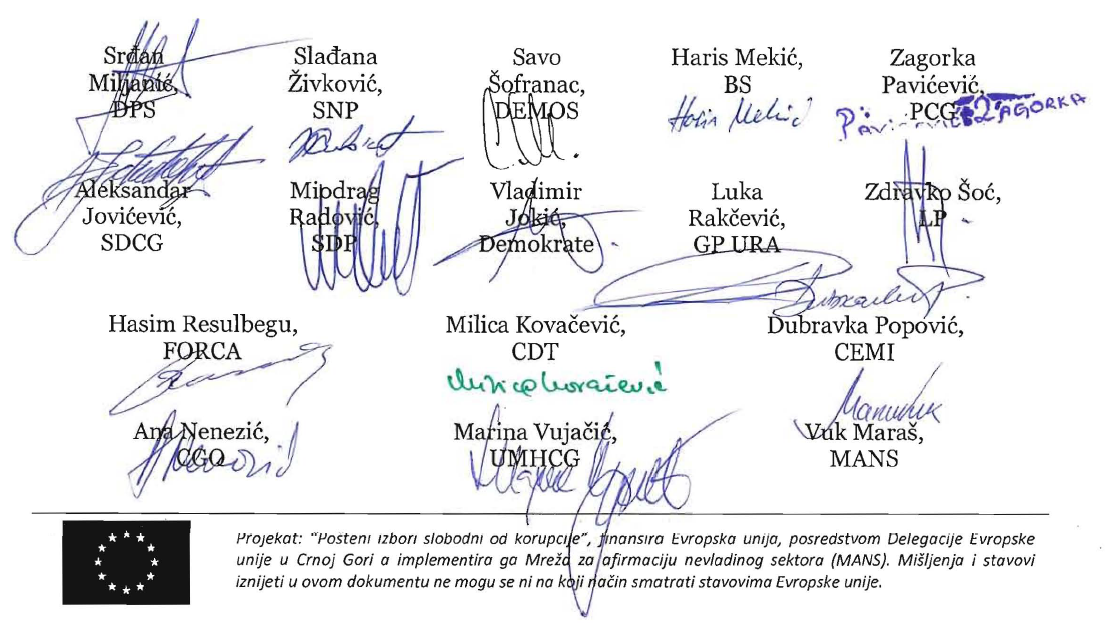 Srđan Miljanić, DPS
Slađana Živković, SNP
Savo Šofranac, DEMOS
Haris Mekić, BS
Zagorka Pavićević, PCG
Haris Mekić
ZAGORKA
Aleksandar Jovićević, SDCG
Miodrag Radović, SDP
Vladimir Jokić, Demokrate
Luka Rakčević, GP URA
Zdravko Šoć, LP
Hasim Resulbegu, FORCA
Milica Kovačević, CDT
Dubravka Popović, CEMI
Milica Kovačević
Ana Nenezić, CGO
Marina Vujačić, UMHCG
Vuk Maraš, MANS
Projekat: “Posteni izbori slobodni od korupcije”, finansira Evropska unija, posredstvom Delegacije Evropske
unije u Crnoj Gori a implementira ga Mreža za afirmaciju nevladinog sektora (MANS). Mišljenja i stavovi
iznijeti u ovom dokumentu ne mogu se ni na koji način smatrati stavovima Evropske unije.